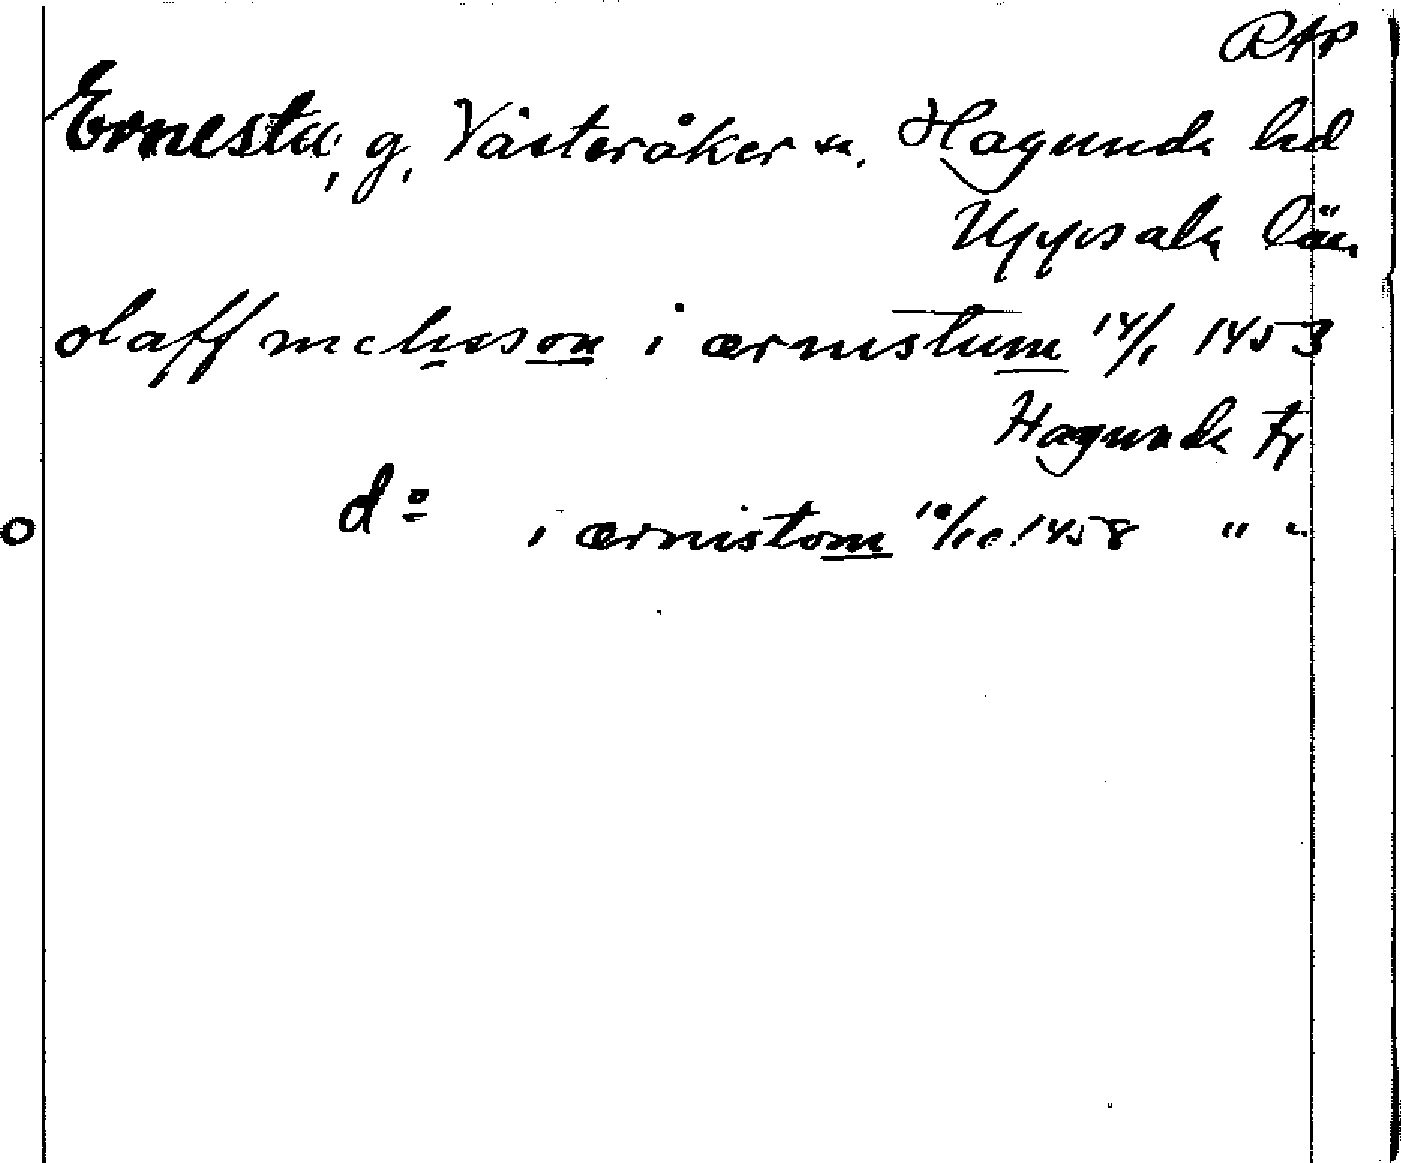 RAP
Ernesta, g, Västeråker sn. Hagunda hd
Uppsala län
olaff michæsson i ærnistum 14/1 1453
Hagunda
d:o i ærnistom 10/10 1458 " "